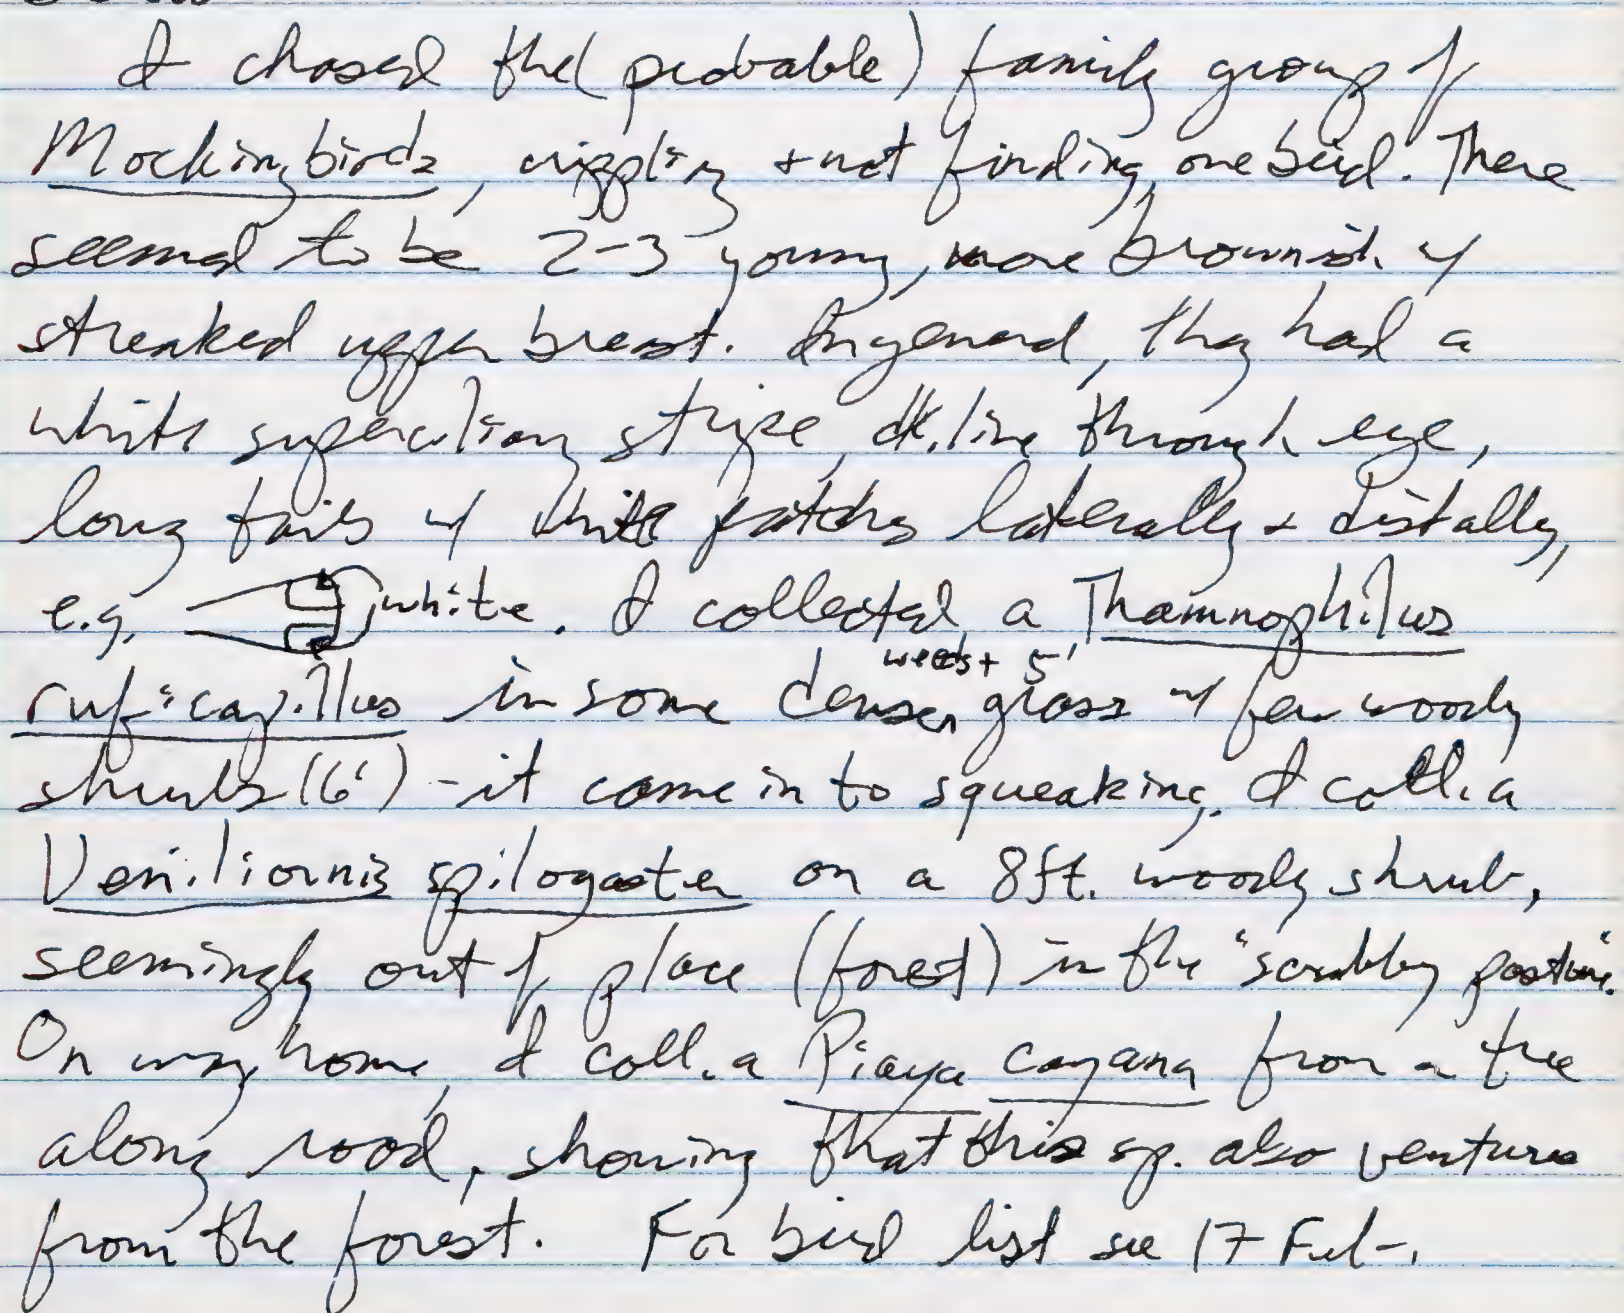 I chased the (probable) family group of
Mockingbirds, crippling + not finding one bird. There
seemed to be 2-3 young, more brownish w/
streaked upper breast. In general, they had a
white superciliary stripe, dk. line through eye,
long tails w/ white patches laterally + distally,
e.g. white. I collected a Thamnophilus
weeds + 5'
ruficapillus in some dense grass w/ few woody
shrubs (6') - it came in to squeaking. I coll. a
Veniliornis spilogaster on a 8ft. woody shrub,
seemingly out of place (forest) in the "scrubby pasture".
On way home, I coll. a Piaya cayana from a tree
along road, showing that this sp. also ventures
from the forest. For bird list see 17 Feb.